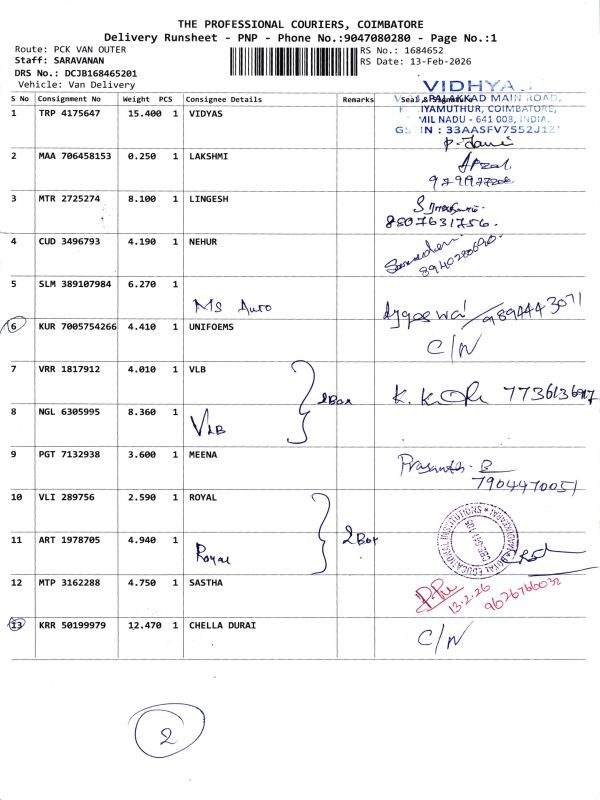 THE PROFESSIONAL COURIERS, COIMBATORE
Delivery Runsheet - PNP - Phone No.:9047080280 - Page No.:1
Route: PCK VAN OUTER
RS No.: 1684652
Staff: SARAVANAN
RS Date: 13-Feb-2026
DRS No.: DCJB168465201
Vehicle: Van Delivery
VIDHYA
S No Consignment No Weight PCS Consignee Details Remarks
PALAKKAD MAIN ROAD,
1 TRP 4175647 15.400 1 VIDYAS
IYAMUTHUR, COIMBATORE,
MIL NADU - 641 008, INDIA.
IN : 33AASFV7552J1Z
2 MAA 706458153 0.250 1 LAKSHMI
3 MTR 2725274 8.100 1 LINGESH
8807631756.
4 CUD 3496793 4.190 1 NEHUR
8940280690.
5 SLM 389107984 6.270 1
Ms Auto
9894443071
6 KUR 7005754266 4.410 1 UNIFOEMS
C/N
7 VRR 1817912 4.010 1 VLB
2Box
K.
8 NGL 6305995 8.360 1
VLB
9 PGT 7132938 3.600 1 MEENA
Prasanth. B
7904470051
10 VLI 289756 2.590 1 ROYAL
11 ART 1978705 4.940 1
2 Box
Royal
12 MTP 3162288 4.750 1 SASTHA
13.2.26
9626766032
13 KRR 50199979 12.470 1 CHELLA DURAI
C/N
2